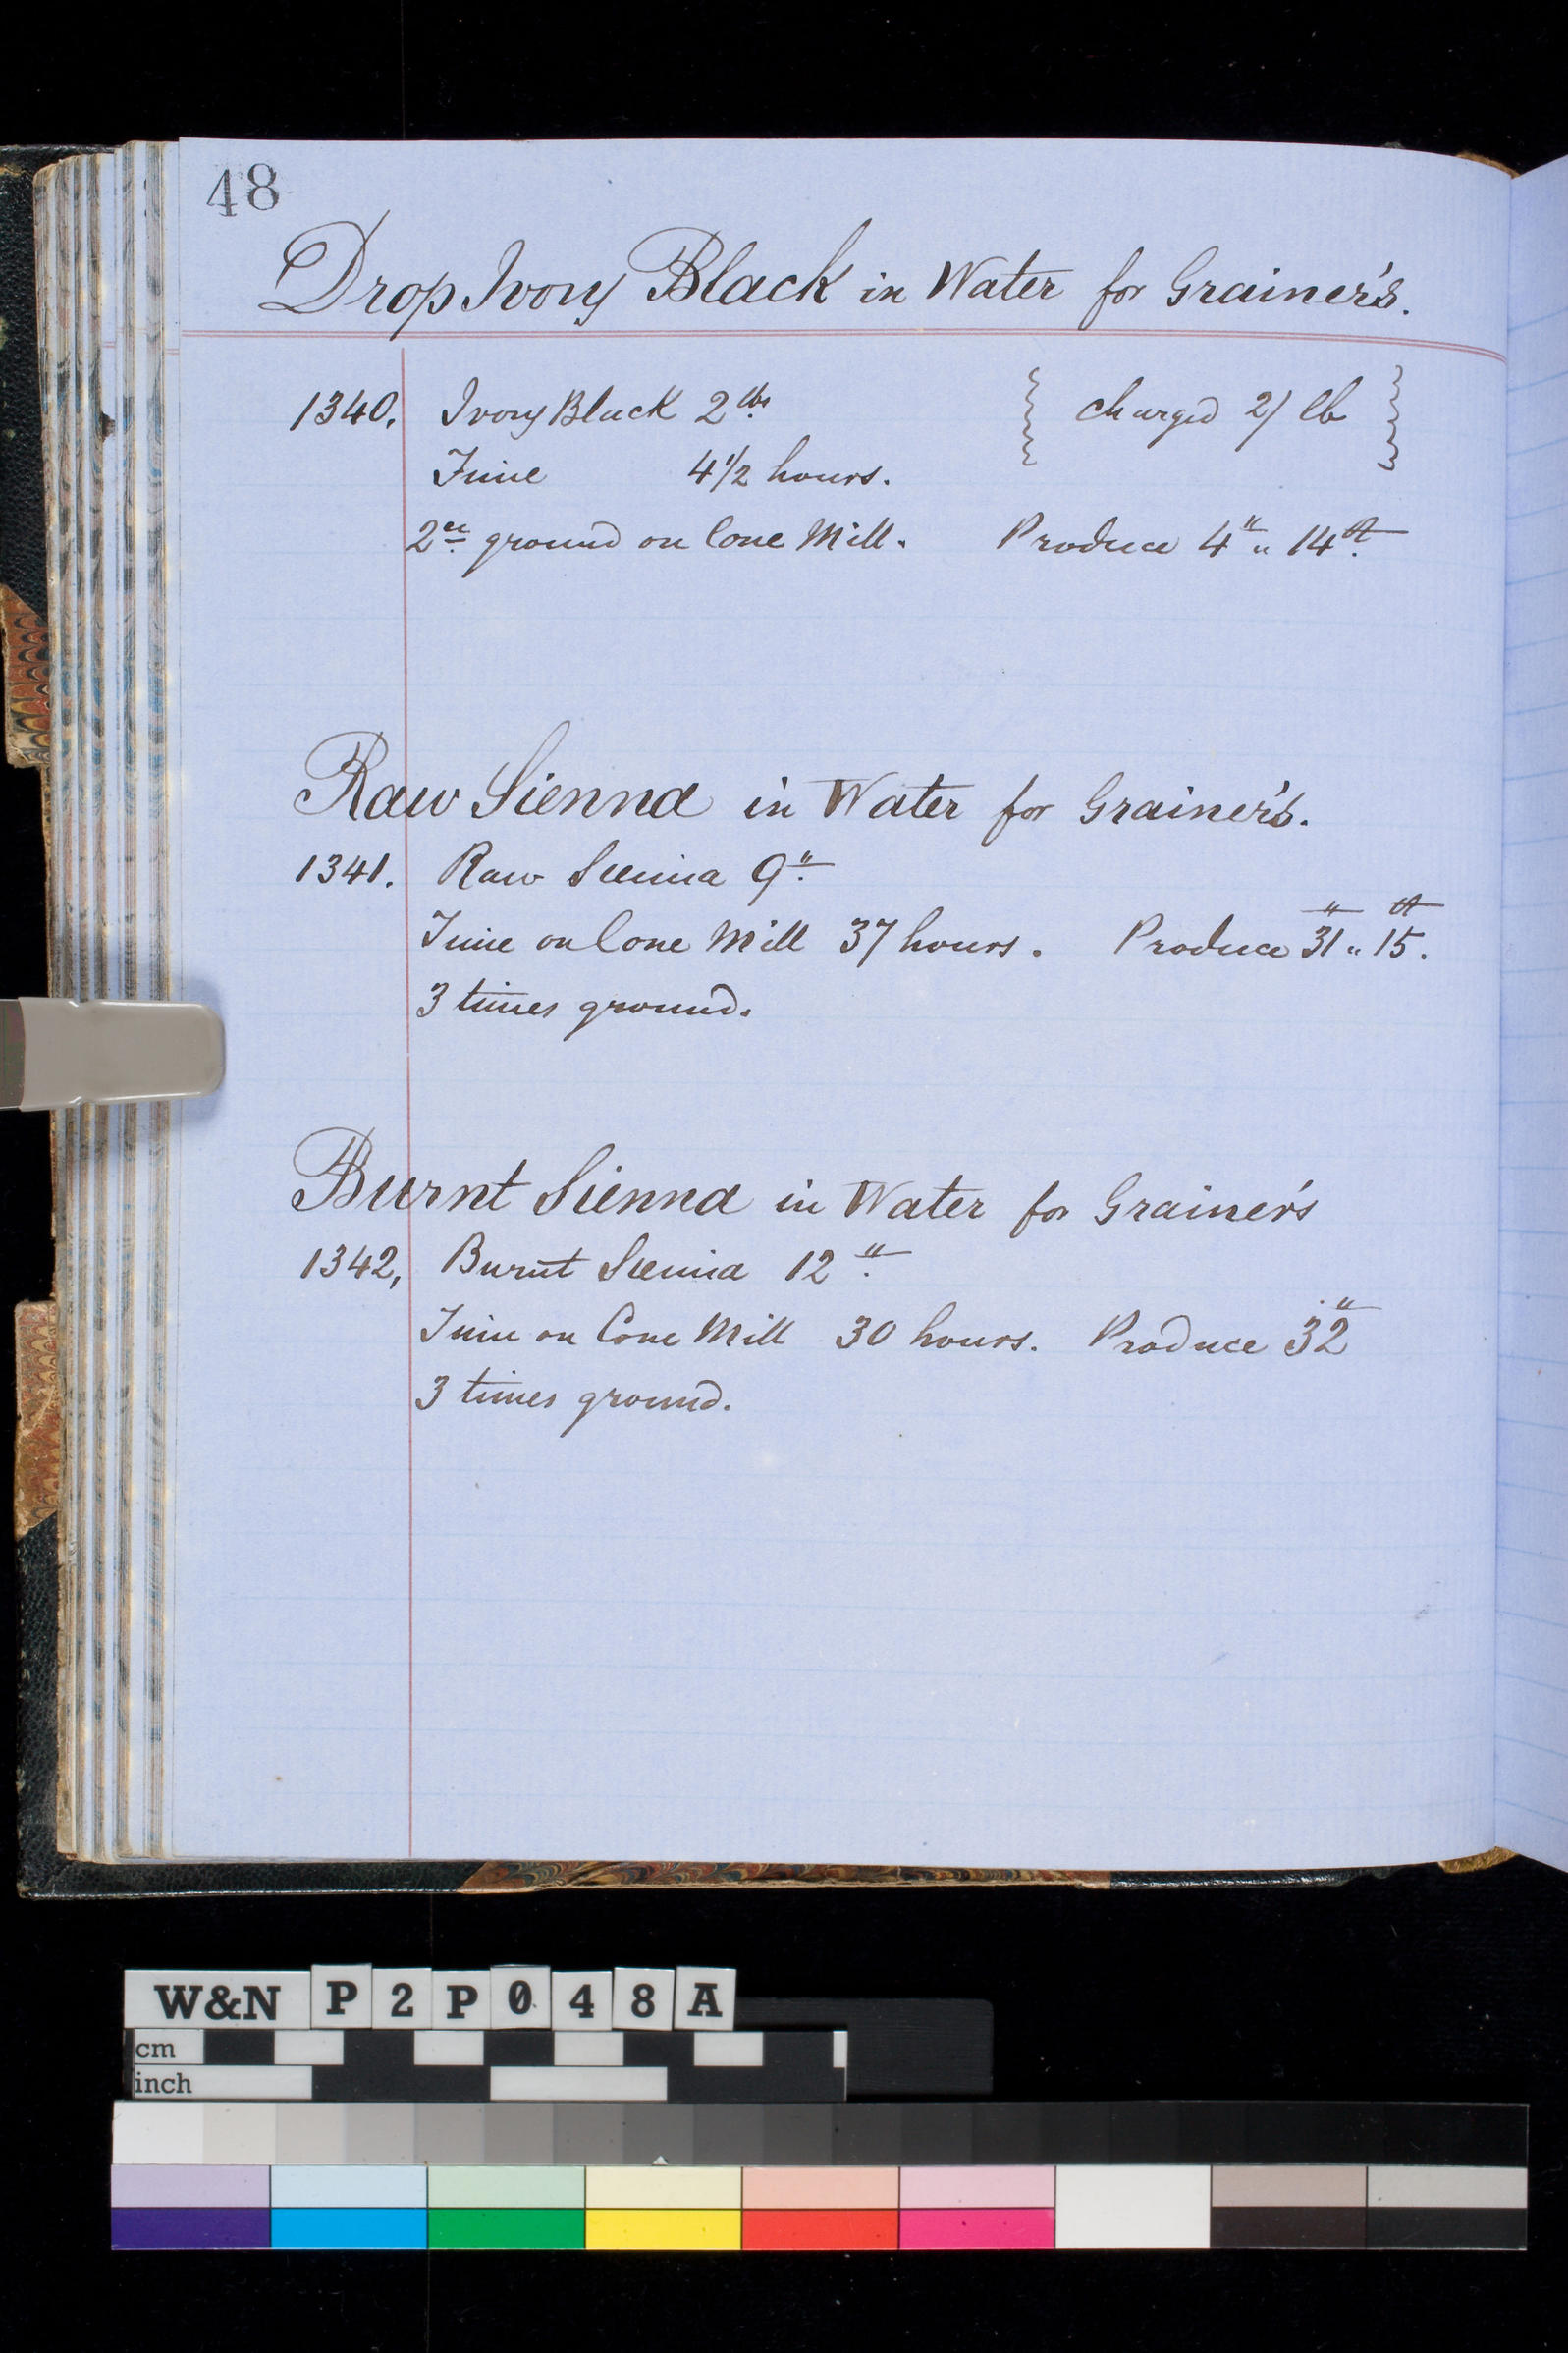 48
Drop Ivory Black in Water for Grainer's.
1340. Ivory Black 2 lbs { Charged 2/ lb }
Time 4 1/2 hours.
2ce ground on Cone Mill. Produce 4 " 14
Raw Sienna in Water for Grainer's.
1341. Raw Sienna 9
Time on Cone Mill 37 hours. Produce 31 " 15.
3 times ground.
Burnt Sienna in Water for Grainer's
1342, Burnt Sienna 12
Time on Cone Mill 30 hours. Produce 32
3 times ground.
W&N P2P048A
cm
inch